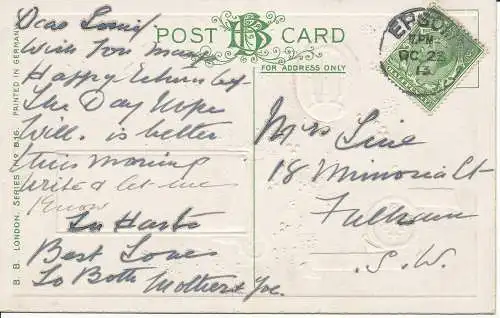 Dear Louie
POST B CARD
FOR ADDRESS ONLY
B. B. LONDON. SERIES Nº B16. PRINTED IN GERMANY.
EPSOM
OC 22
Wish you many
Happy Returns of
the Day hope
Will. is better
this morning
write & let me
Know
In Haste
Best Love
to Both Mother & Joe.
Mrs Line
18
Fulham
S.W.